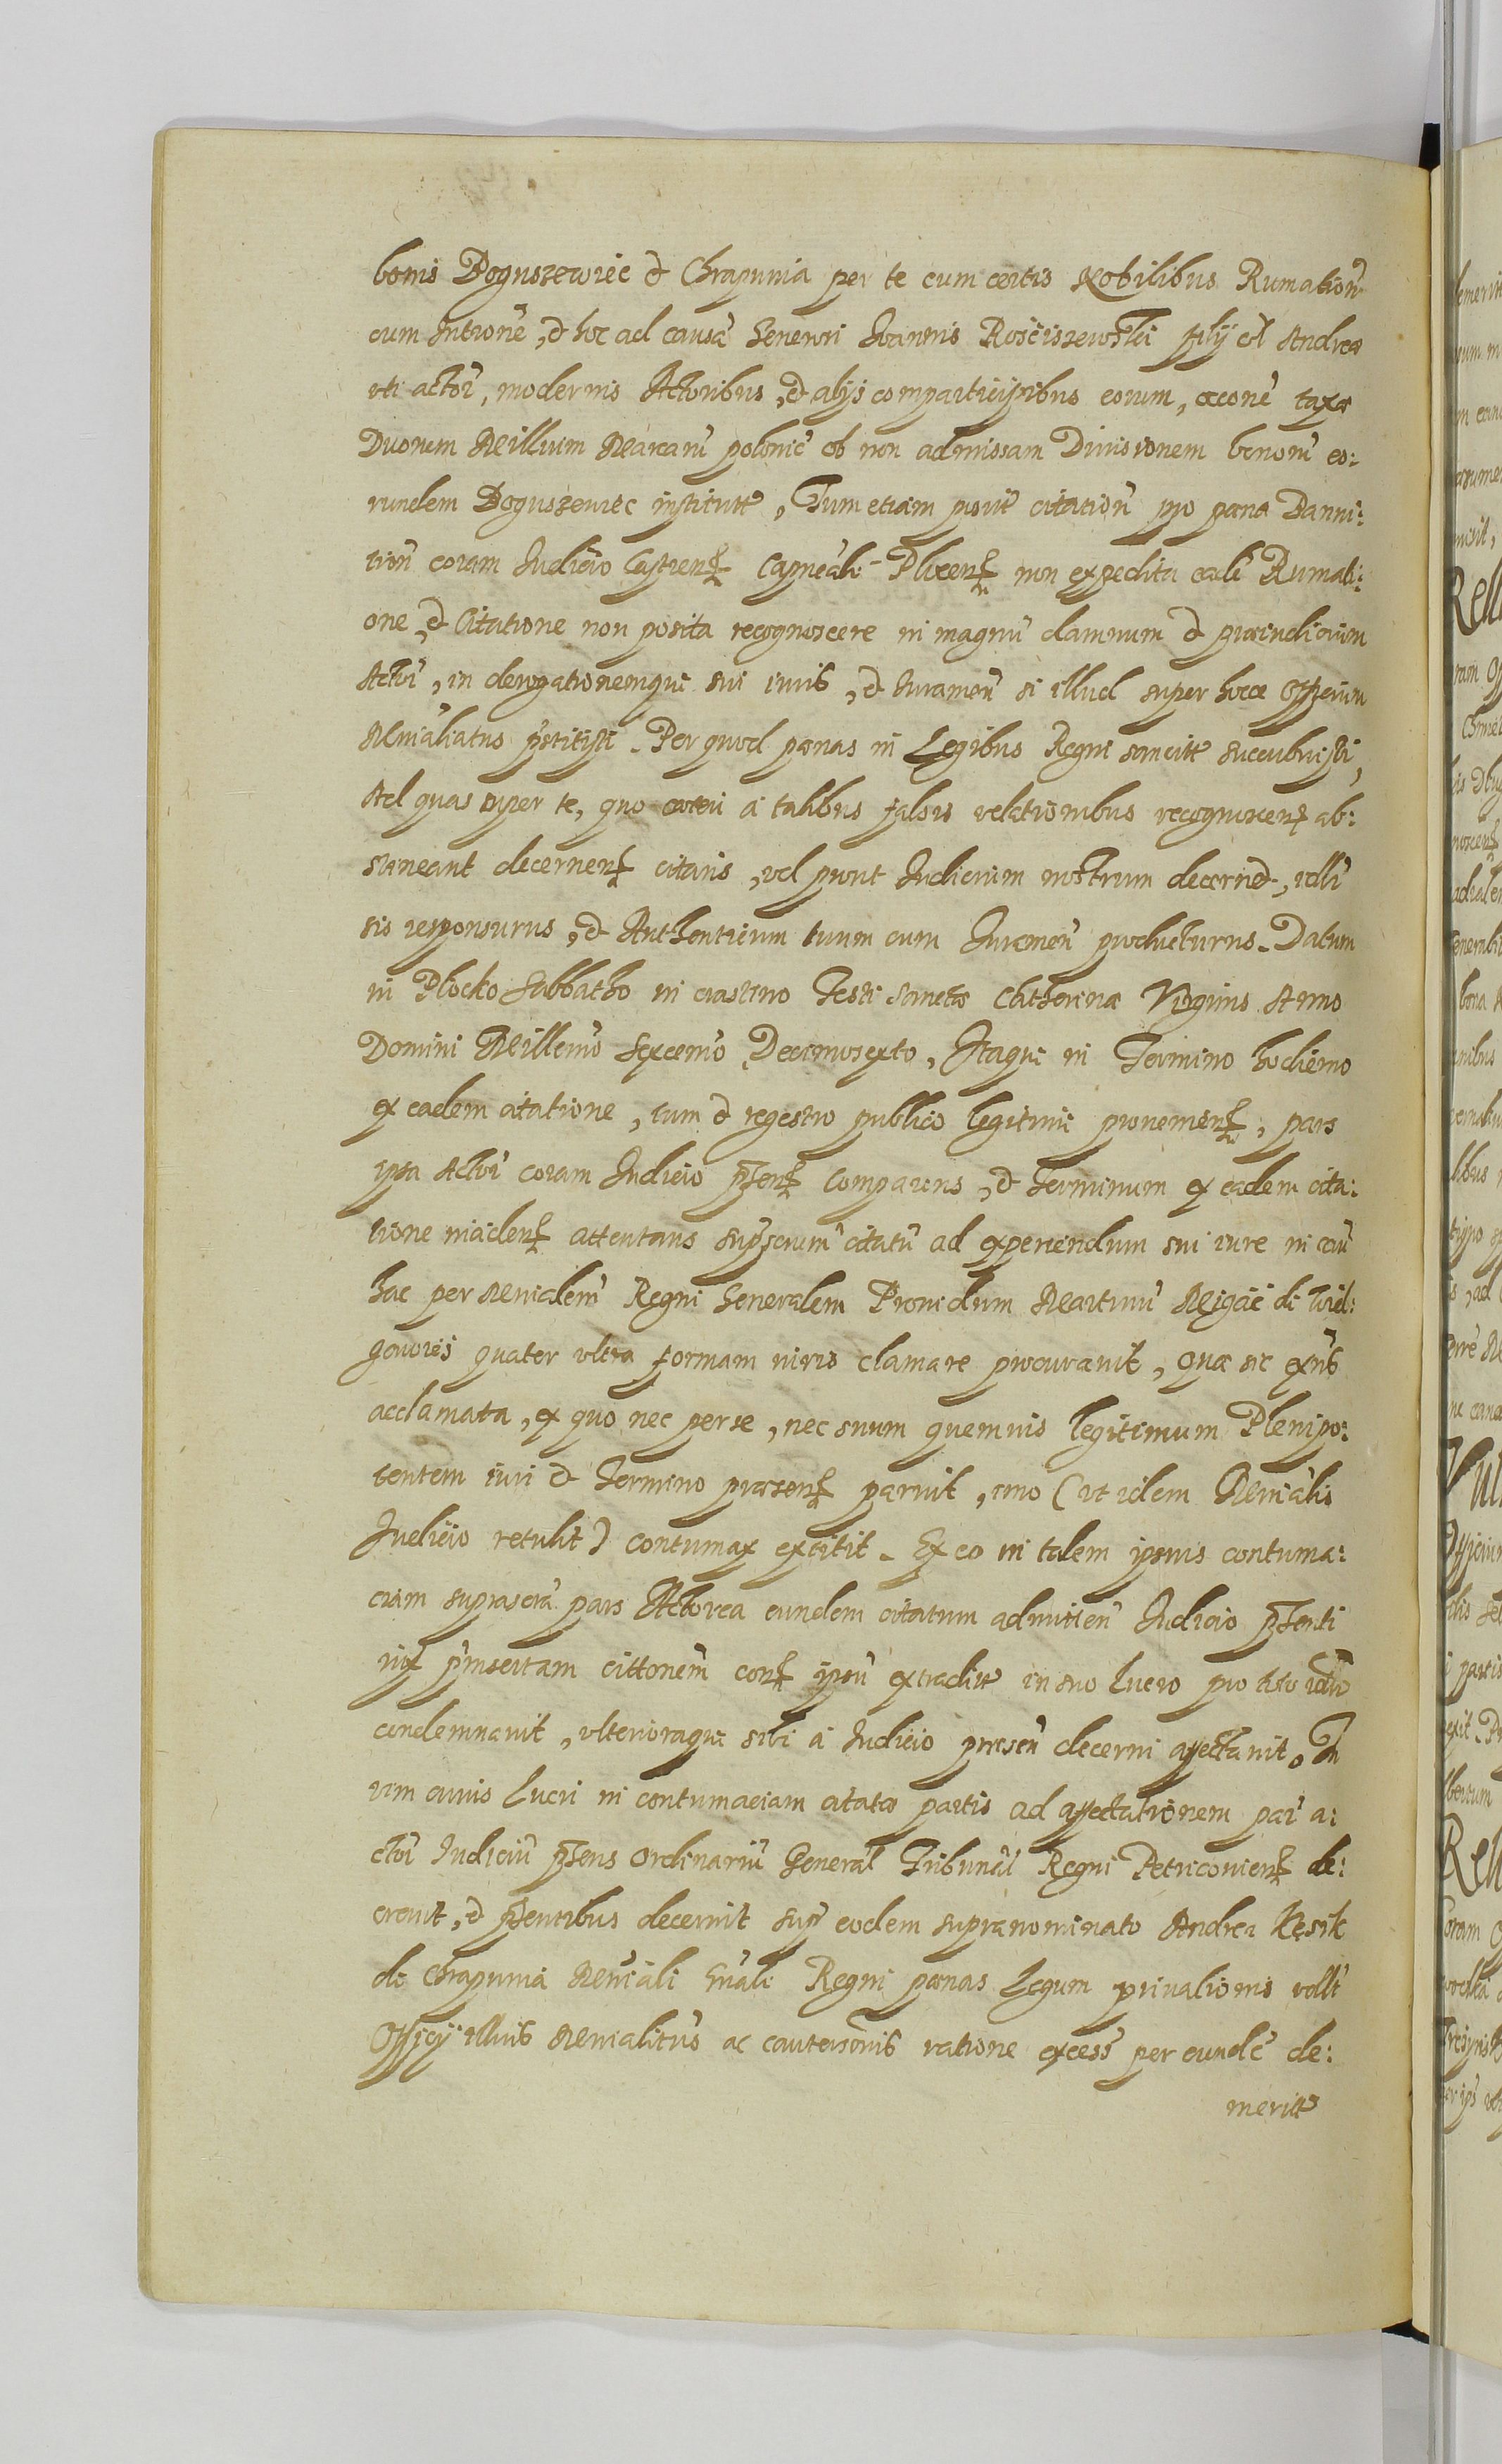 bonis Boguszewiec et Chrapunia per te cum certis Nobilibus Rumation
cum Intione, et hoc ad causã Generosi Ioannis Rosciszewski filÿ ol Andreæ
uti actoř, modernis Actoribus, et alÿs comparticipibus eorum, rãcone taxæ
Duorum Millium Marcarũ polonič ob non admissam Divisionem bonorũ eo:
rundem Boguszewiec institutæ, Tum etiam posit citation pro pæna Banni:
tion coram Iudicio Castren Capneali Plocen non expedita tali Rumati:
one, et Citatione non posita recognoscere in magnũ damnum et præiudicium
Actoř, in derogationemque sui iuris, et Iuramen si illud super hocce Officium
Minliatus pstitisti. Per quod pænas in Legibus Regni sancitæ succubuisti,
Ad quas super te, quo cæteri à talibus falsis relationibus recognoscen ab:
stineant decernen citaris, vel prout Iudicium nostrum decernet, idli
sis responsurus, et Authenticum tuum cum Iuramen producturus. Datum
in Plocko Sabbatho in crastino Festi Sanctæ Catherinæ Virginis Anno
Domini Millemo Sexcemo Decimosexto, Itaque in Termino hodierno
ex eadem citatione, tum et regestro publico legitime provenien, pars
ipsa Actoř coram Iudicio psen comparens, et Terminum ex eadem cita:
tione inciden attentans supscrum citatũ ad experiendum sui iure in cau
hac per Ministlem Regni Generalem Providum Martinũ Migač de Wid:
gowies quater ultra formam iuris clamare procuravit, quæ sic exñs
acclamata, ex quo nec per se, nec suum quemvis legitimum Plenipo:
tentem iuri et Termino præsen paruit, imo (ut idem Minialis
Iudicio retulit) contumax extitit. Ex eo in talem ipsius contuma:
ciam suprascra pars Actorea eundem citatum admittien Iudicio psenti
iux pinsertam cittonem con ipsũ extraditæ in suo Lucro pro toto
condemnavit, ulterioraque sibi à Iudicio præsen decerni affectavit. In
vim cuius Lucri in contumaciam citatæ partis ad affectationem par a:
ctoř Iudiciũ psens Ordinariũ General Tribunal Regni Petricovien de:
crevit, et psentibus decernit sup eodem supranominato Andrea Kęsik
de Chrapunia Miniali Gnali Regni pænas Legum privationis vdlt
Officÿ illius Minialitus ac cauterionis ratione excess per eundẽ de:
meritæ